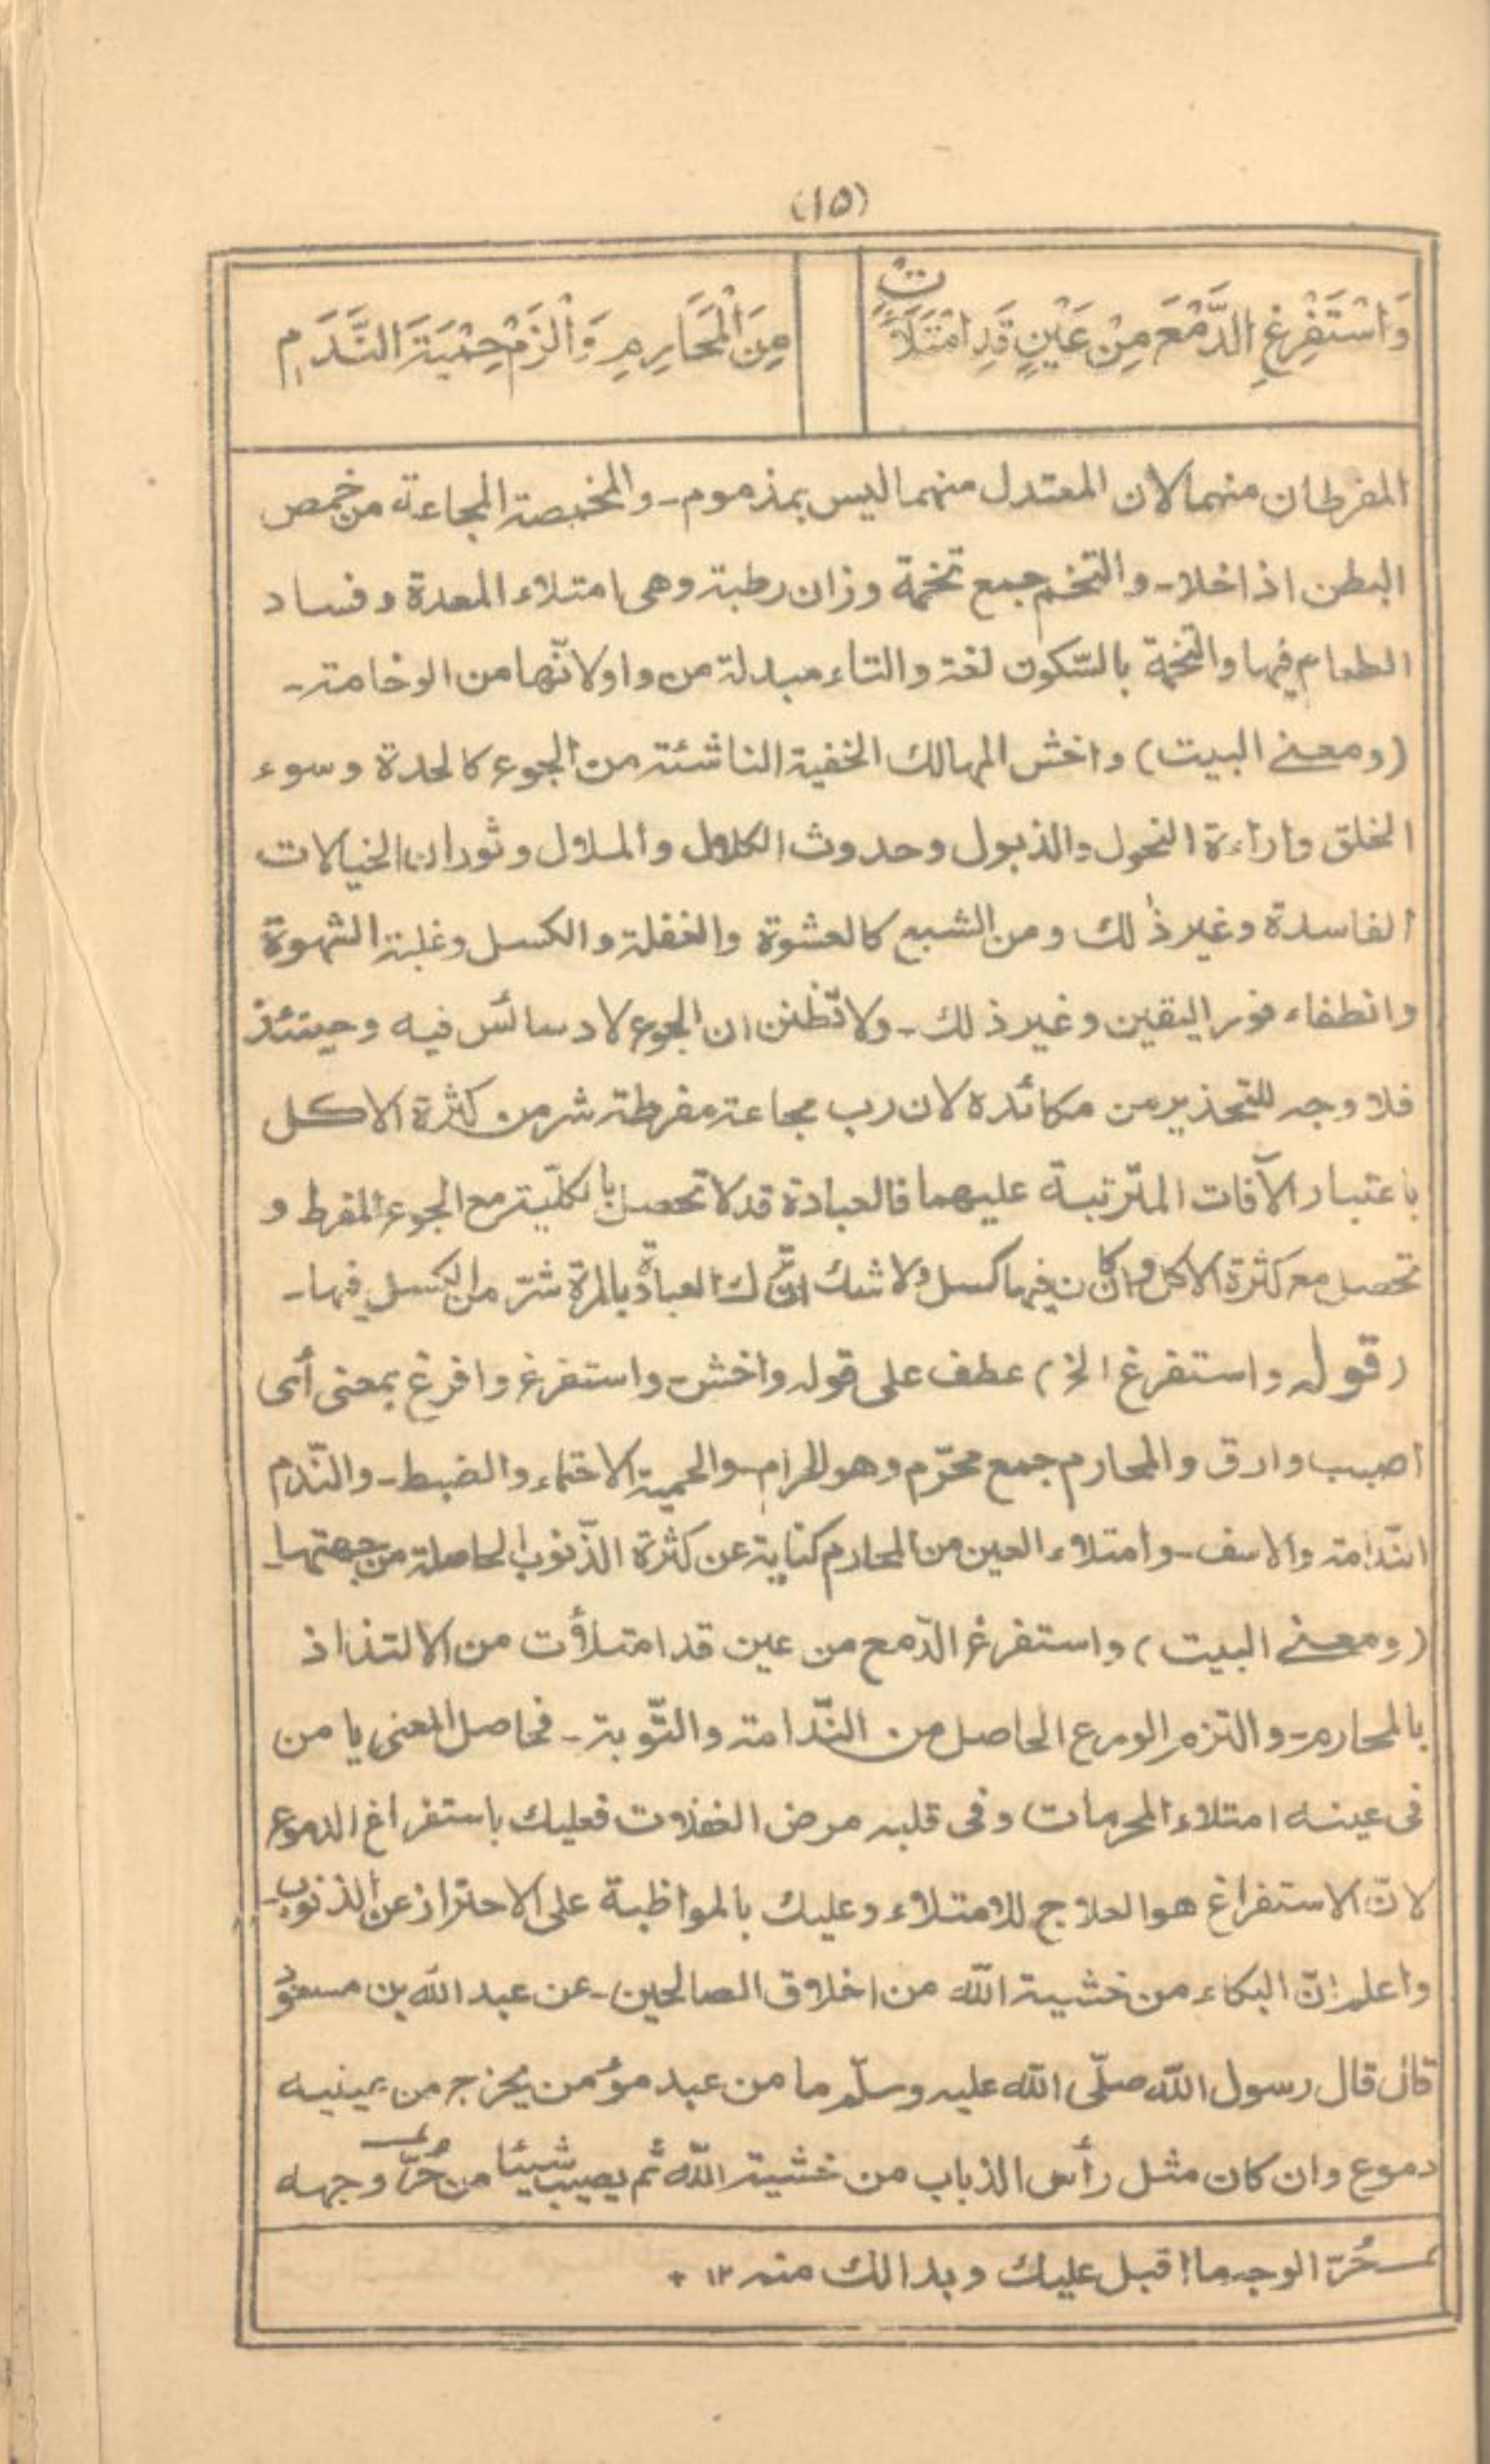 (١٥)
وَاسْتَفْرِغِ الدَّمْعَ مِنْ عَيْنٍ قَدِ امْتَلَأَتْ مِنَ الْمَحَارِمِ وَالْزَمْ حِمْيَةَ النَّدَمِ
المفرطان منهما لان المعتدل منهما ليس بمذموم - والمخمصة المجاعة من خمص
البطن اذا خلا - والتخم جمع تخمة وزان رطبة وهى امتلاء المعدة وفساد
الطعام فيها والتخمة بالسّكون لغة والتاء مبدلة من واو لانّها من الوخامة -
(ومعنے البيت) واخش المهالك الخفية الناشئة من الجوع كالحدة وسوء
الخلق واراءة النحول والذبول وحدوث الكلال والملال وثوران الخيالات
الفاسدة وغير ذٰلك ومن الشبع كالعشوة والغفلة والكسل وغلبة الشهوة
وانطفاء نور اليقين وغير ذلك - ولا تظنن ان الجوع لا دسائس فيه وحينئذ
فلا وجه للتحذير من مكائده لان رب مجاعة مفرطة شر من كثرة الاكل
باعتبار الآفات المترتبة عليهما فالعبادة قد لا تحصل بالكلّية مع الجوع المفرط و
تحصل مع كثرة الاكل وان كان فيها كسل ولا شك انّ ترك العبادة بالمرة شرّ من الكسل فيها -
(قوله واستفرغ الخ) عطف على قوله واخش - واستفرغ وافرغ بمعنى أى
اصبب وارق والمحارم جمع محرّم وهو الحرام - والحمية الاحتماء والضبط - والنّدم
النّدامة والاسف - وامتلاء العين من المحارم كناية عن كثرة الذّنوب الحاصلة من جهتها -
(ومعنے البيت) واستفرغ الدّمع من عين قد امتلأت من الالتذاذ
بالمحارم - والتزم الورع الحاصل من النّدامة والتّوبة - فحاصل المعنى يا من
فى عينه امتلاء المحرمات وفى قلبه مرض الغفلات فعليك باستفراغ الدموع
لانّ الاستفراغ هو العلاج للامتلاء وعليك بالمواظبة على الاحتراز عن الذنوب -
واعلم انّ البكاء من خشية الله من اخلاق الصالحين - عن عبد الله بن مسعود
قال قال رسول الله صلّى الله عليه وسلّم ما من عبد مؤمن يخرج من عينيه
دموع وان كان مثل رأس الذباب من خشية الله ثم يصيب شيئا من حُرّ وجهه
حُرّ الوجه ما اقبل عليك وبدا لك منه ١٢ +